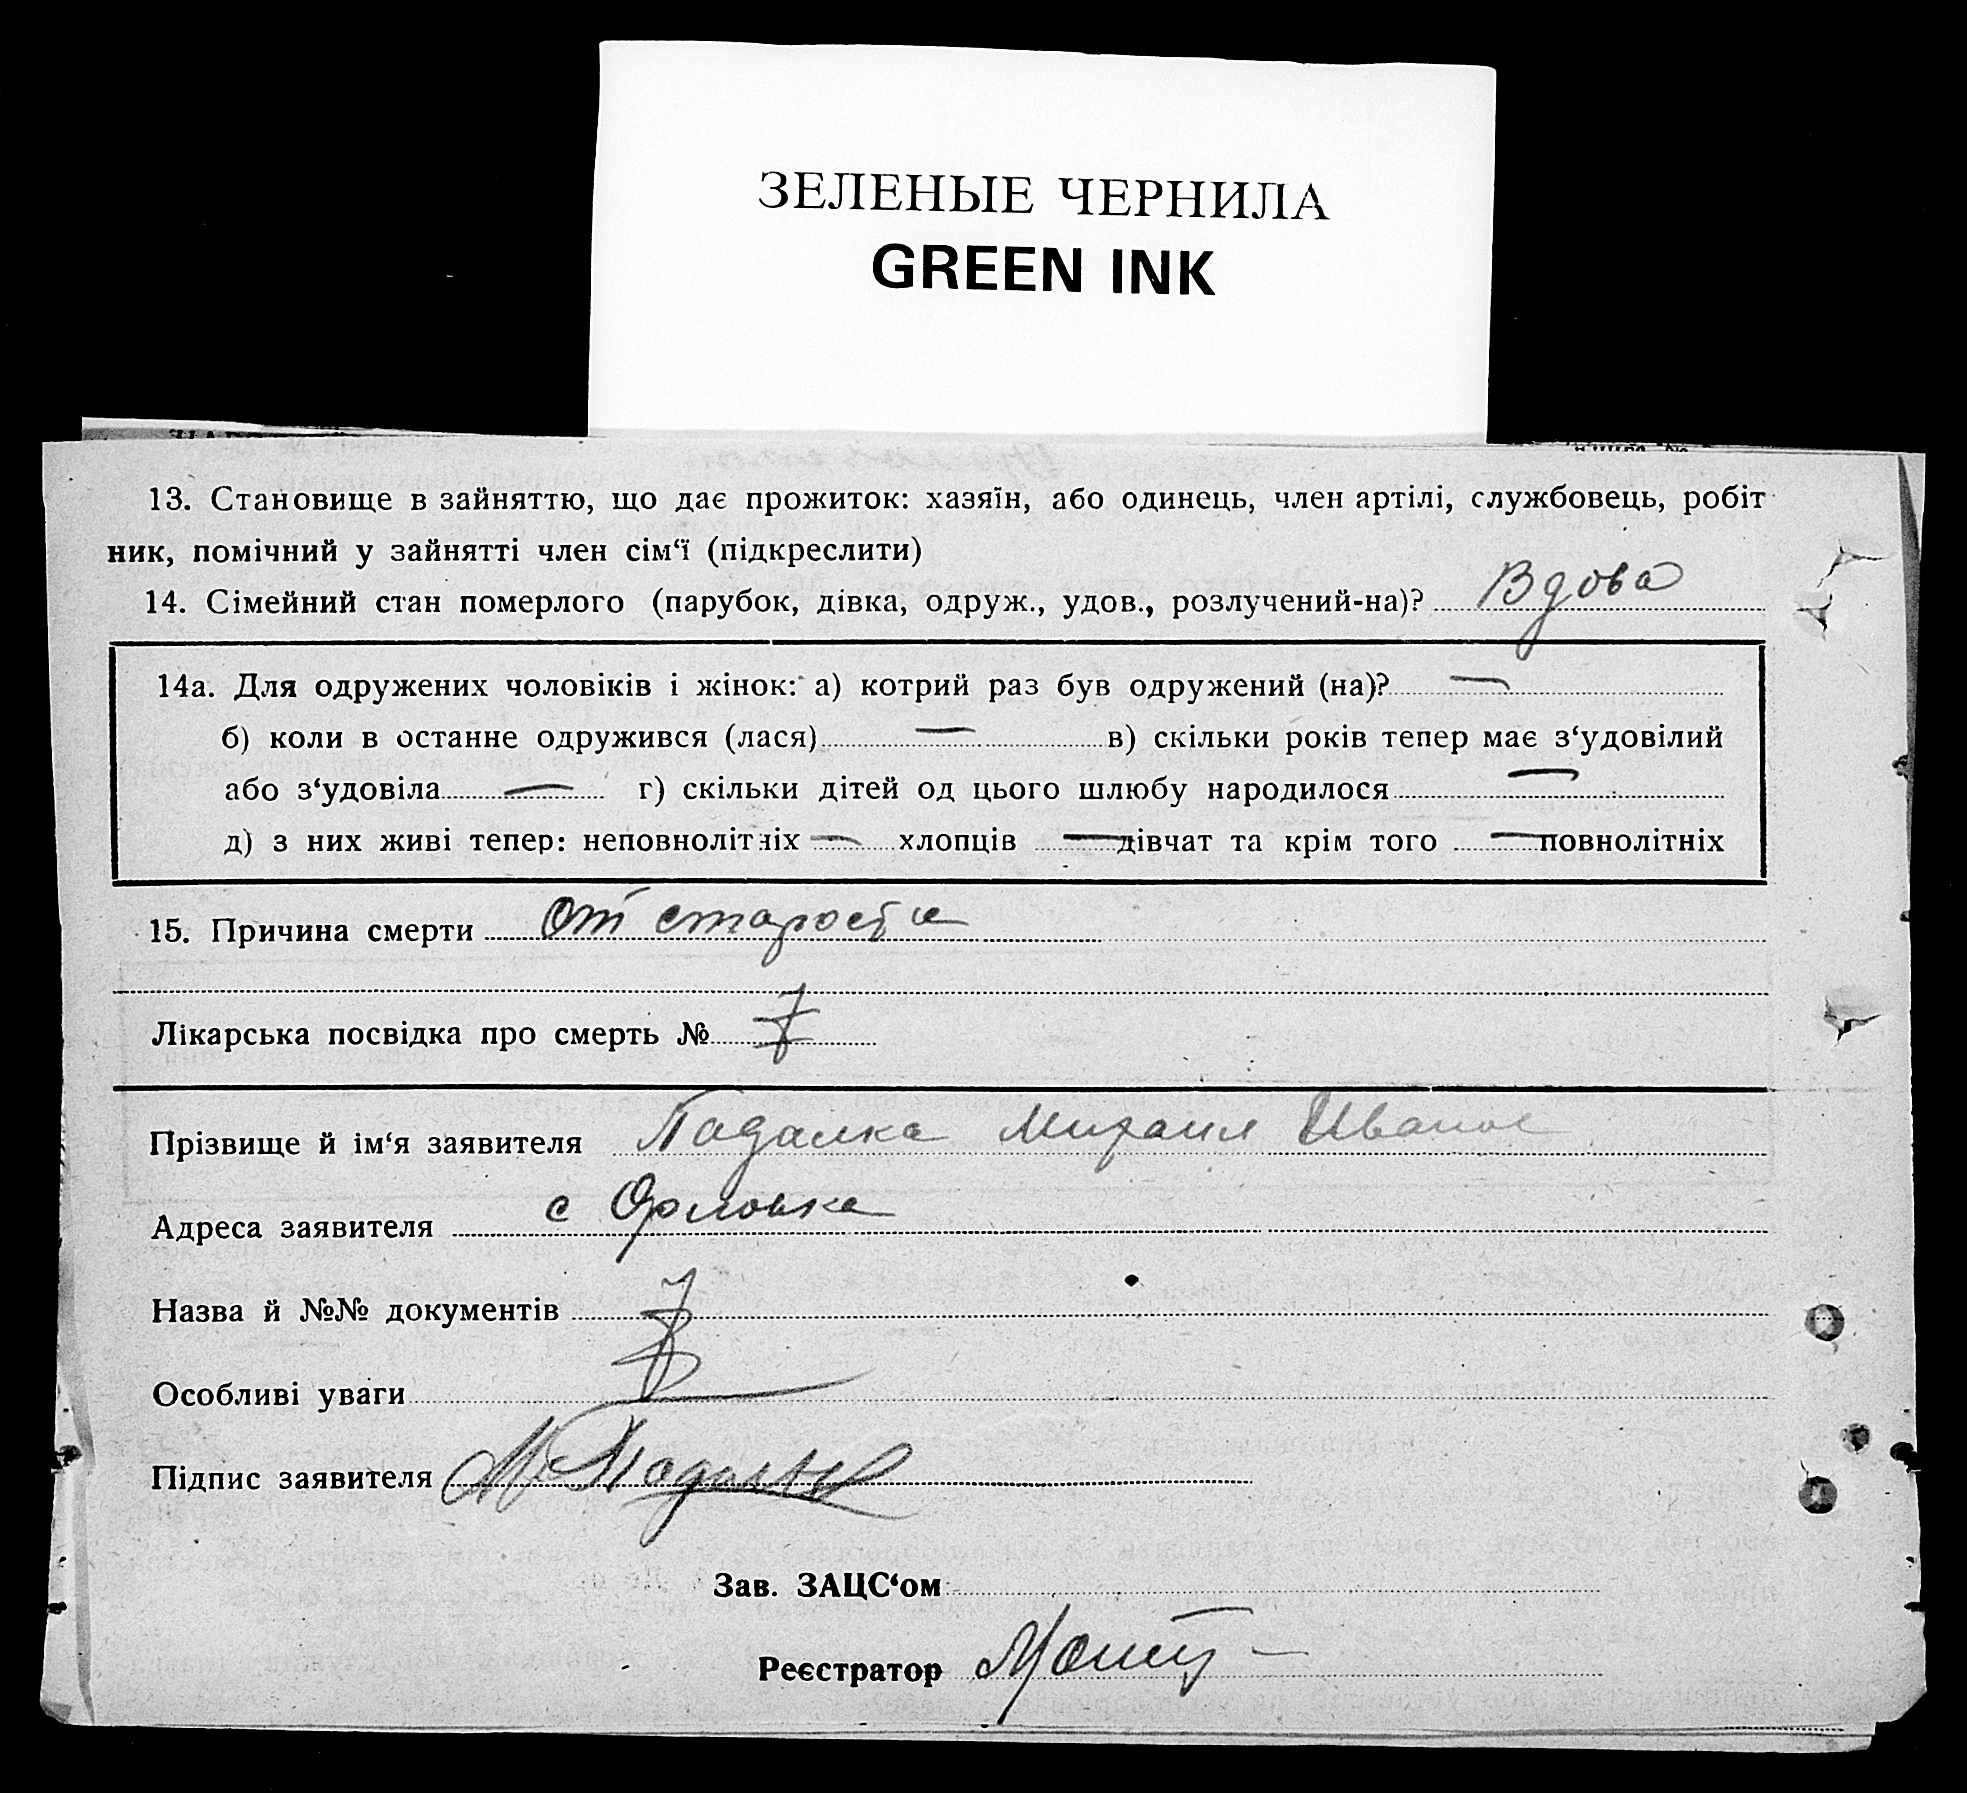 ЗЕЛЕНЫЕ ЧЕРНИЛА
GREEN INK
13. Становище в зайняттю, що дає прожиток: хазяїн, або одинець, член артілі, службовець, робіт
ник, помічний у зайнятті член сім‘ї (підкреслити)
14. Сімейний стан померлого (парубок, дівка, одруж., удов., розлучений-на)? Вдова
14а. Для одружених чоловіків і жінок: а) котрий раз був одружений (на)? —
б) коли в останне одружився (лася) — в) скільки років тепер має з‘удовілий
або з‘удовіла — г) скільки дітей од цього шлюбу народилося —
д) з них живі тепер: неповнолітніх — хлопців — дівчат та крім того — повнолітніх
15. Причина смерти От старости
Лікарська посвідка про смерть №
Прізвище й ім‘я заявителя Падалка Михаил Иванов
Адреса заявителя с Орловка
Назва й №№ документів
Особливі уваги
Підпис заявителя М Падалка
Зав. ЗАЦС‘ом
Реєстратор